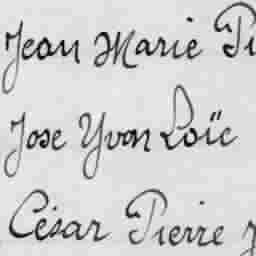 Jean Marie Pi
Jose Yvon Loïc
César Pierre